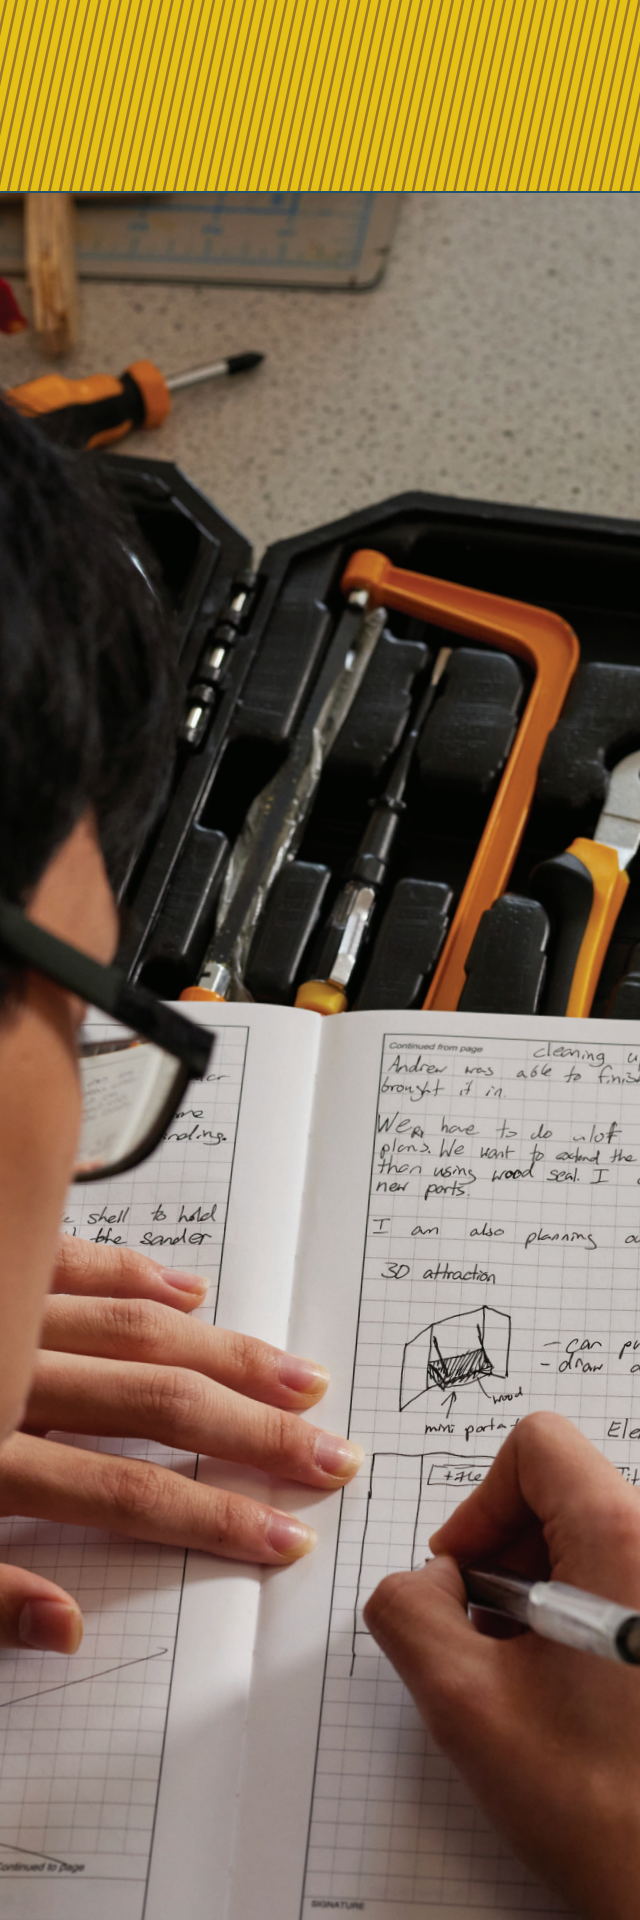 shell to hold
the sander
Continued to page
Continued from page
cleaning up
Andrew was able to finis
brought it in.
We have to do alot
plans. We want to extend the
than using wood seal. I
new parts.
I am also planning
3D attraction
- can
- draw
wood
mini
Ele
title
Tit
SIGNATURE